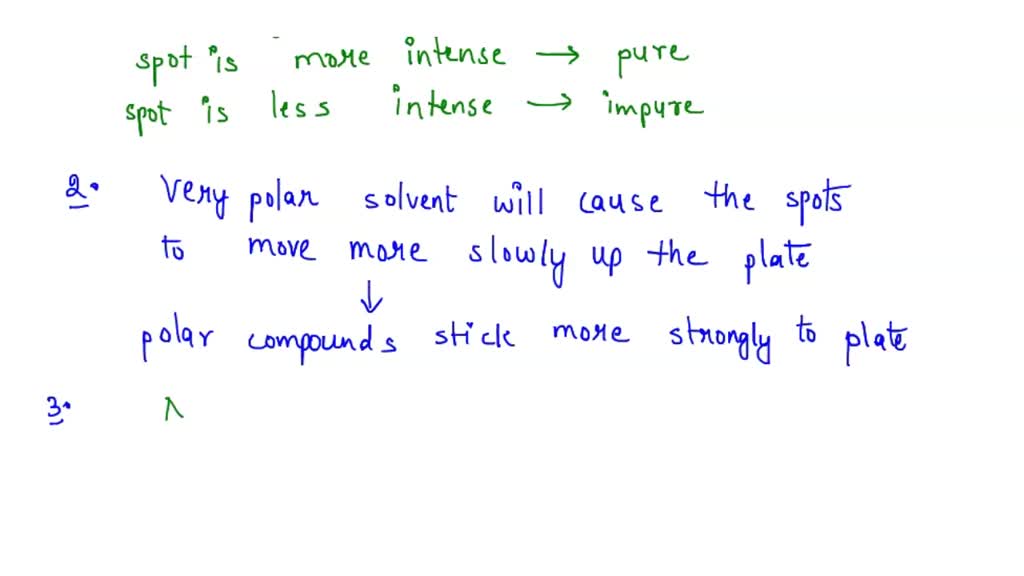 spot is more intense → pure
spot is less intense → impure
2. Very polar solvent will cause the spots
to move more slowly up the plate
↓
polar compounds stick more strongly to plate
3.